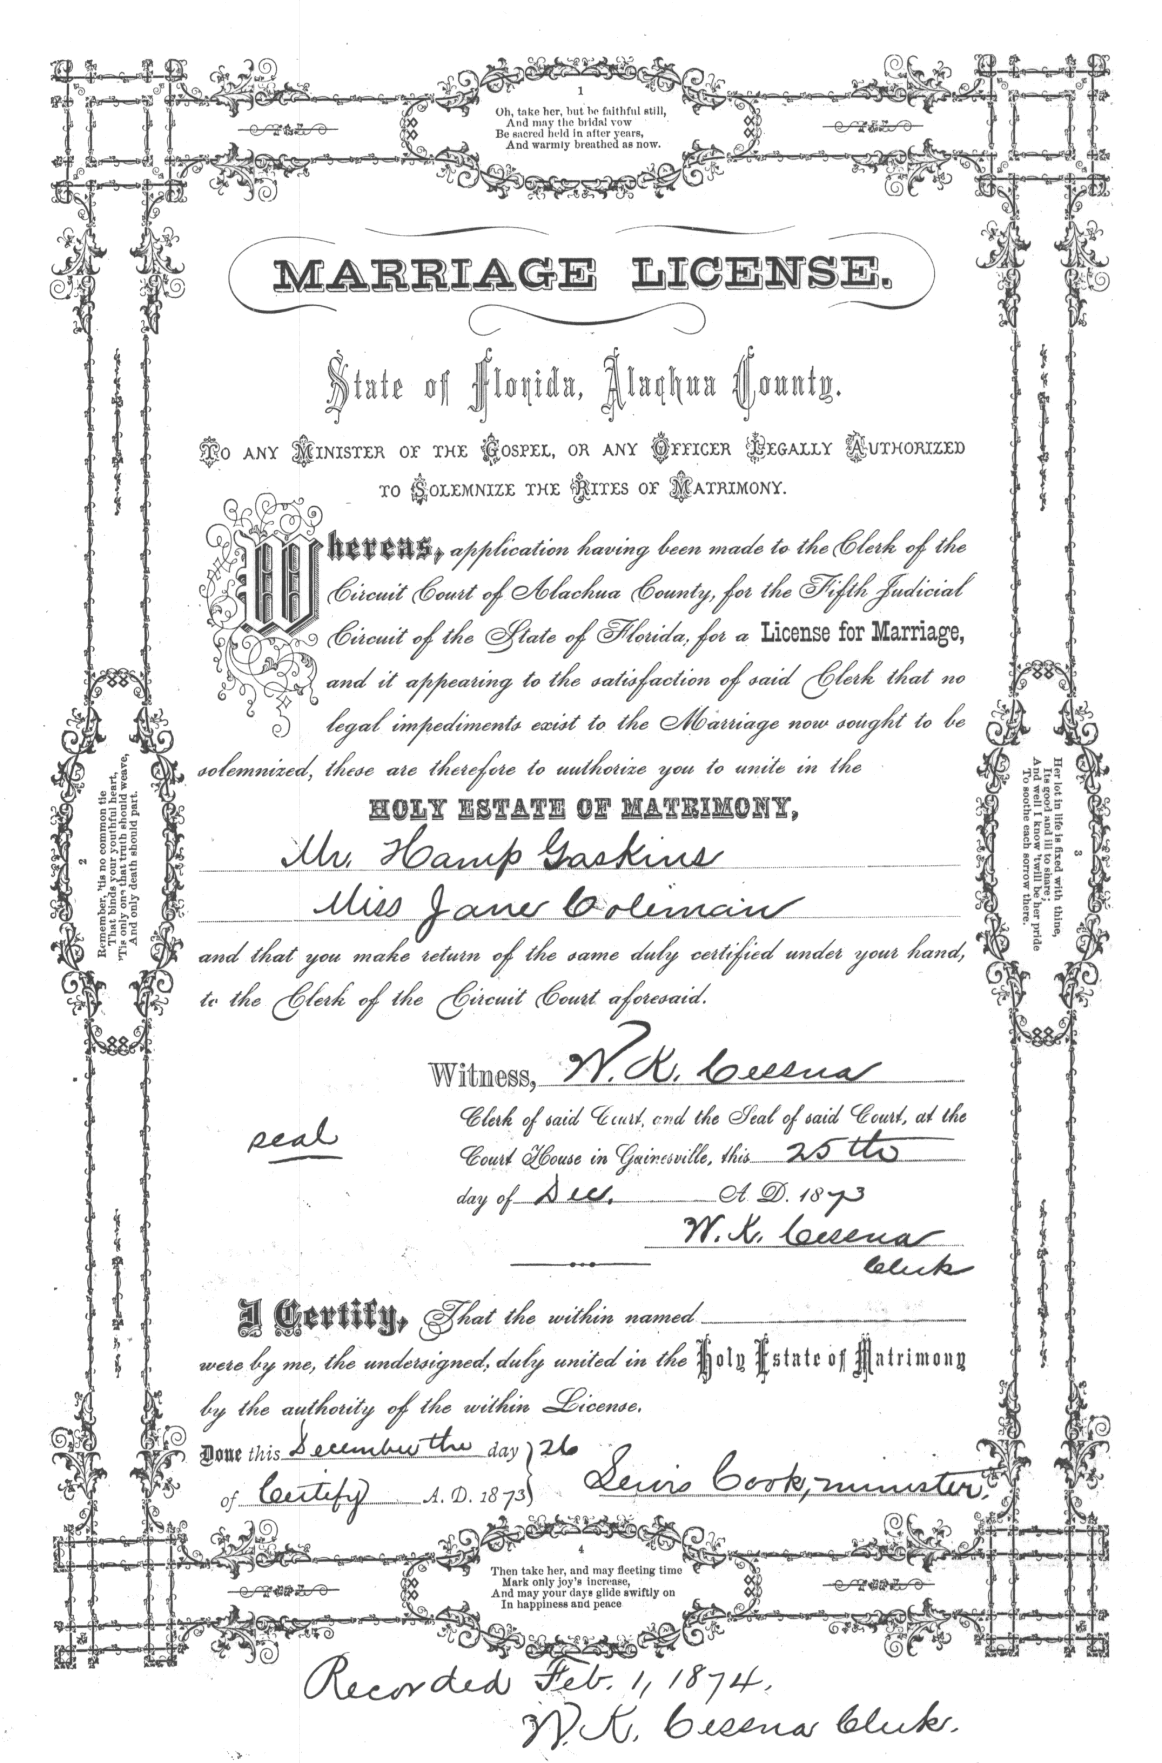 1
Oh, take her, but be faithful still,
And may the bridal vow
Be sacred held in after years,
And warmly breathed as now.
MARRIAGE LICENSE.
State of Florida, Alachua County.
To any Minister of the Gospel, or any Officer Legally Authorized
to Solemnize the Rites of Matrimony.
Whereas, application having been made to the Clerk of the
Circuit Court of Alachua County, for the Fifth Judicial
Circuit of the State of Florida, for a License for Marriage,
and it appearing to the satisfaction of said Clerk that no
legal impediments exist to the Marriage now sought to be
solemnized, these are therefore to authorize you to unite in the
HOLY ESTATE OF MATRIMONY,
Mr. Hamp Gaskins
Miss Jane Coleman
and that you make return of the same duly certified under your hand,
to the Clerk of the Circuit Court aforesaid.
Witness, W. K. Cessna
Clerk of said Court, and the Seal of said Court, at the
seal
Court House in Gainesville, this 25th
day of Dec. A. D. 1873
W. K. Cessna
Clerk
I Certify, That the within named
were by me, the undersigned, duly united in the Holy Estate of Matrimony
by the authority of the within License.
Done this December the day } 26
of Certify A. D. 1873 }
Lewis Cook, minister.
2
Remember, 'tis no common tie
That binds your youthful heart,
'Tis only one that truth should weave,
And only death should part.
3
Her lot in life is fixed with thine,
Its good and ill to share;
And well I know 'twill be her pride
To soothe each sorrow there.
4
Then take her, and may fleeting time
Mark only joy's increase,
And may your days glide swiftly on
In happiness and peace
Recorded Feb. 1, 1874.
W. K. Cessna Clerk.